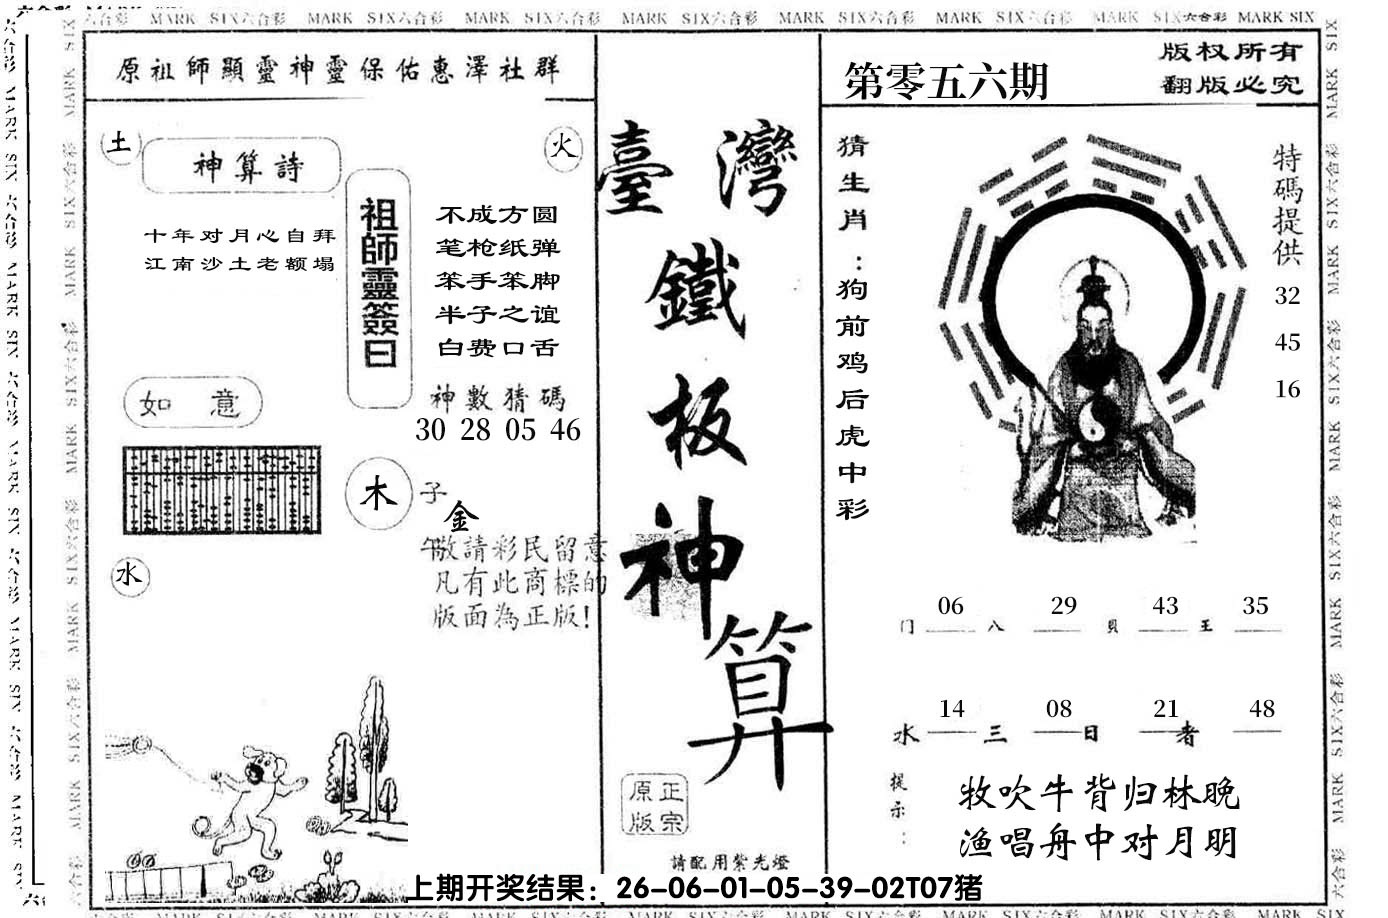 六合彩 MARK SIX六合彩 MARK SIX六合彩 MARK SIX六合彩 MARK SIX六合彩 MARK SIX六合彩 MARK SIX六合彩 MARK SIX六合彩 MARK SIX
原祖師顯靈神靈保佑惠澤社群
土
神算詩
火
十年对月心自拜
江南沙土老额塌
祖師靈簽曰
不成方圆
笔枪纸弹
笨手笨脚
半子之谊
白费口舌
神數猜碼
30 28 05 46
如 意
木
子
金
午
水
敬請彩民留意
凡有此商標的
版面為正版!
臺灣
鐵
板
神
算
正宗
原版
請配用紫光燈
第零五六期
版权所有
翻版必究
猜生肖:狗前鸡后虎中彩
特碼提供
32
45
16
06 29 43 35
门 八 貝 王
14 08 21 48
水 三 日 者
提示:
牧吹牛背归林晚
渔唱舟中对月明
上期开奖结果：26-06-01-05-39-02T07猪